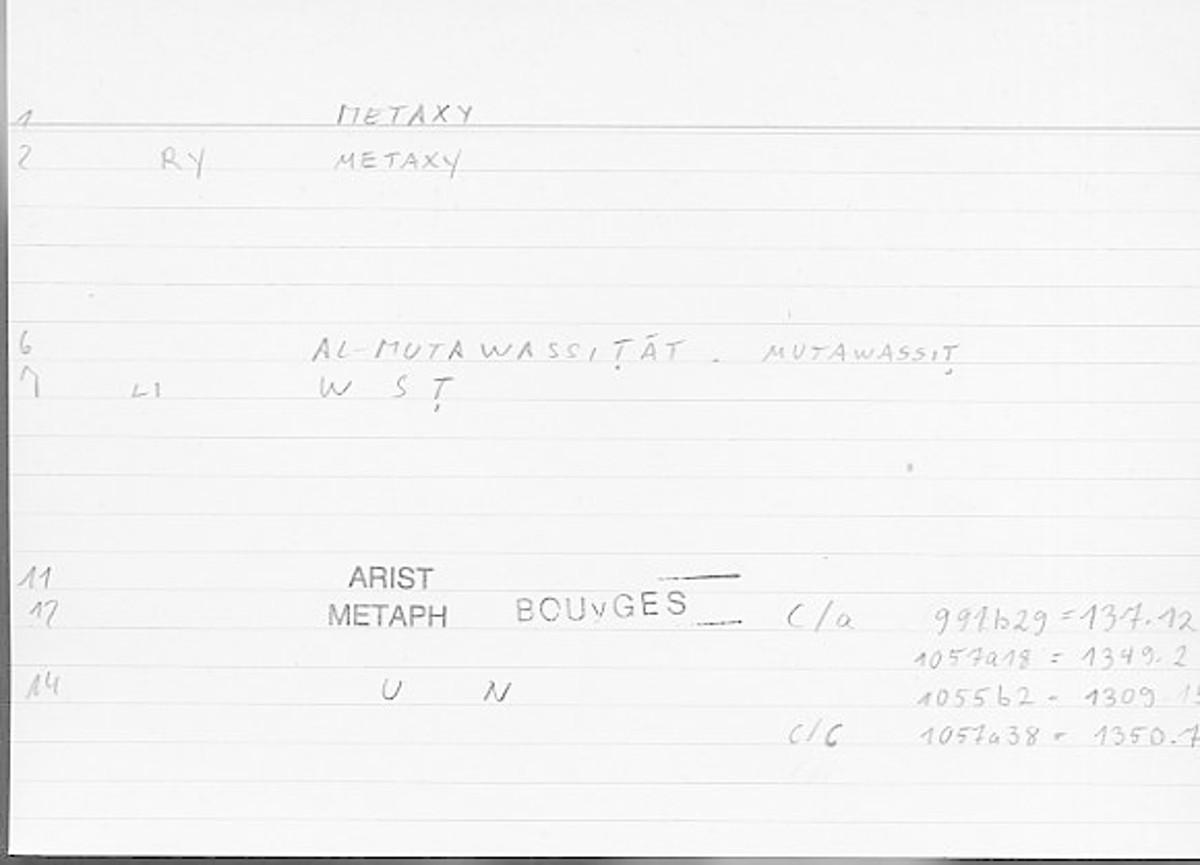 1 METAXY
2 RY METAXY
6 AL-MUTAWASSIṬĀT . MUTAWASSIṬ
7 LI W S Ṭ
11 ARIST
12 METAPH BOUYGES C/a 991b29 = 137.12
1057a18 = 1349.2
14 U N 1055b2 = 1309.15
C/C 1057a38 = 1350.7